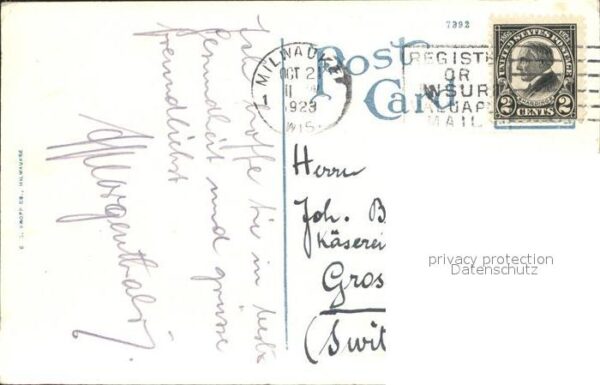 7393
Post
Card
MILWAUKEE
OCT 2
11
1923
WIS.
REGISTER
OR
INSURE
VALUABLE
MAIL
UNITED STATES POSTAGE
2 CENTS 2
Ich hoffe Sie in bester
Gesundheit und grüsse
freundlichst
Morgenthaler.
Herrn
Joh. B
Käserei
Gros
(Swit
privacy protection
Datenschutz